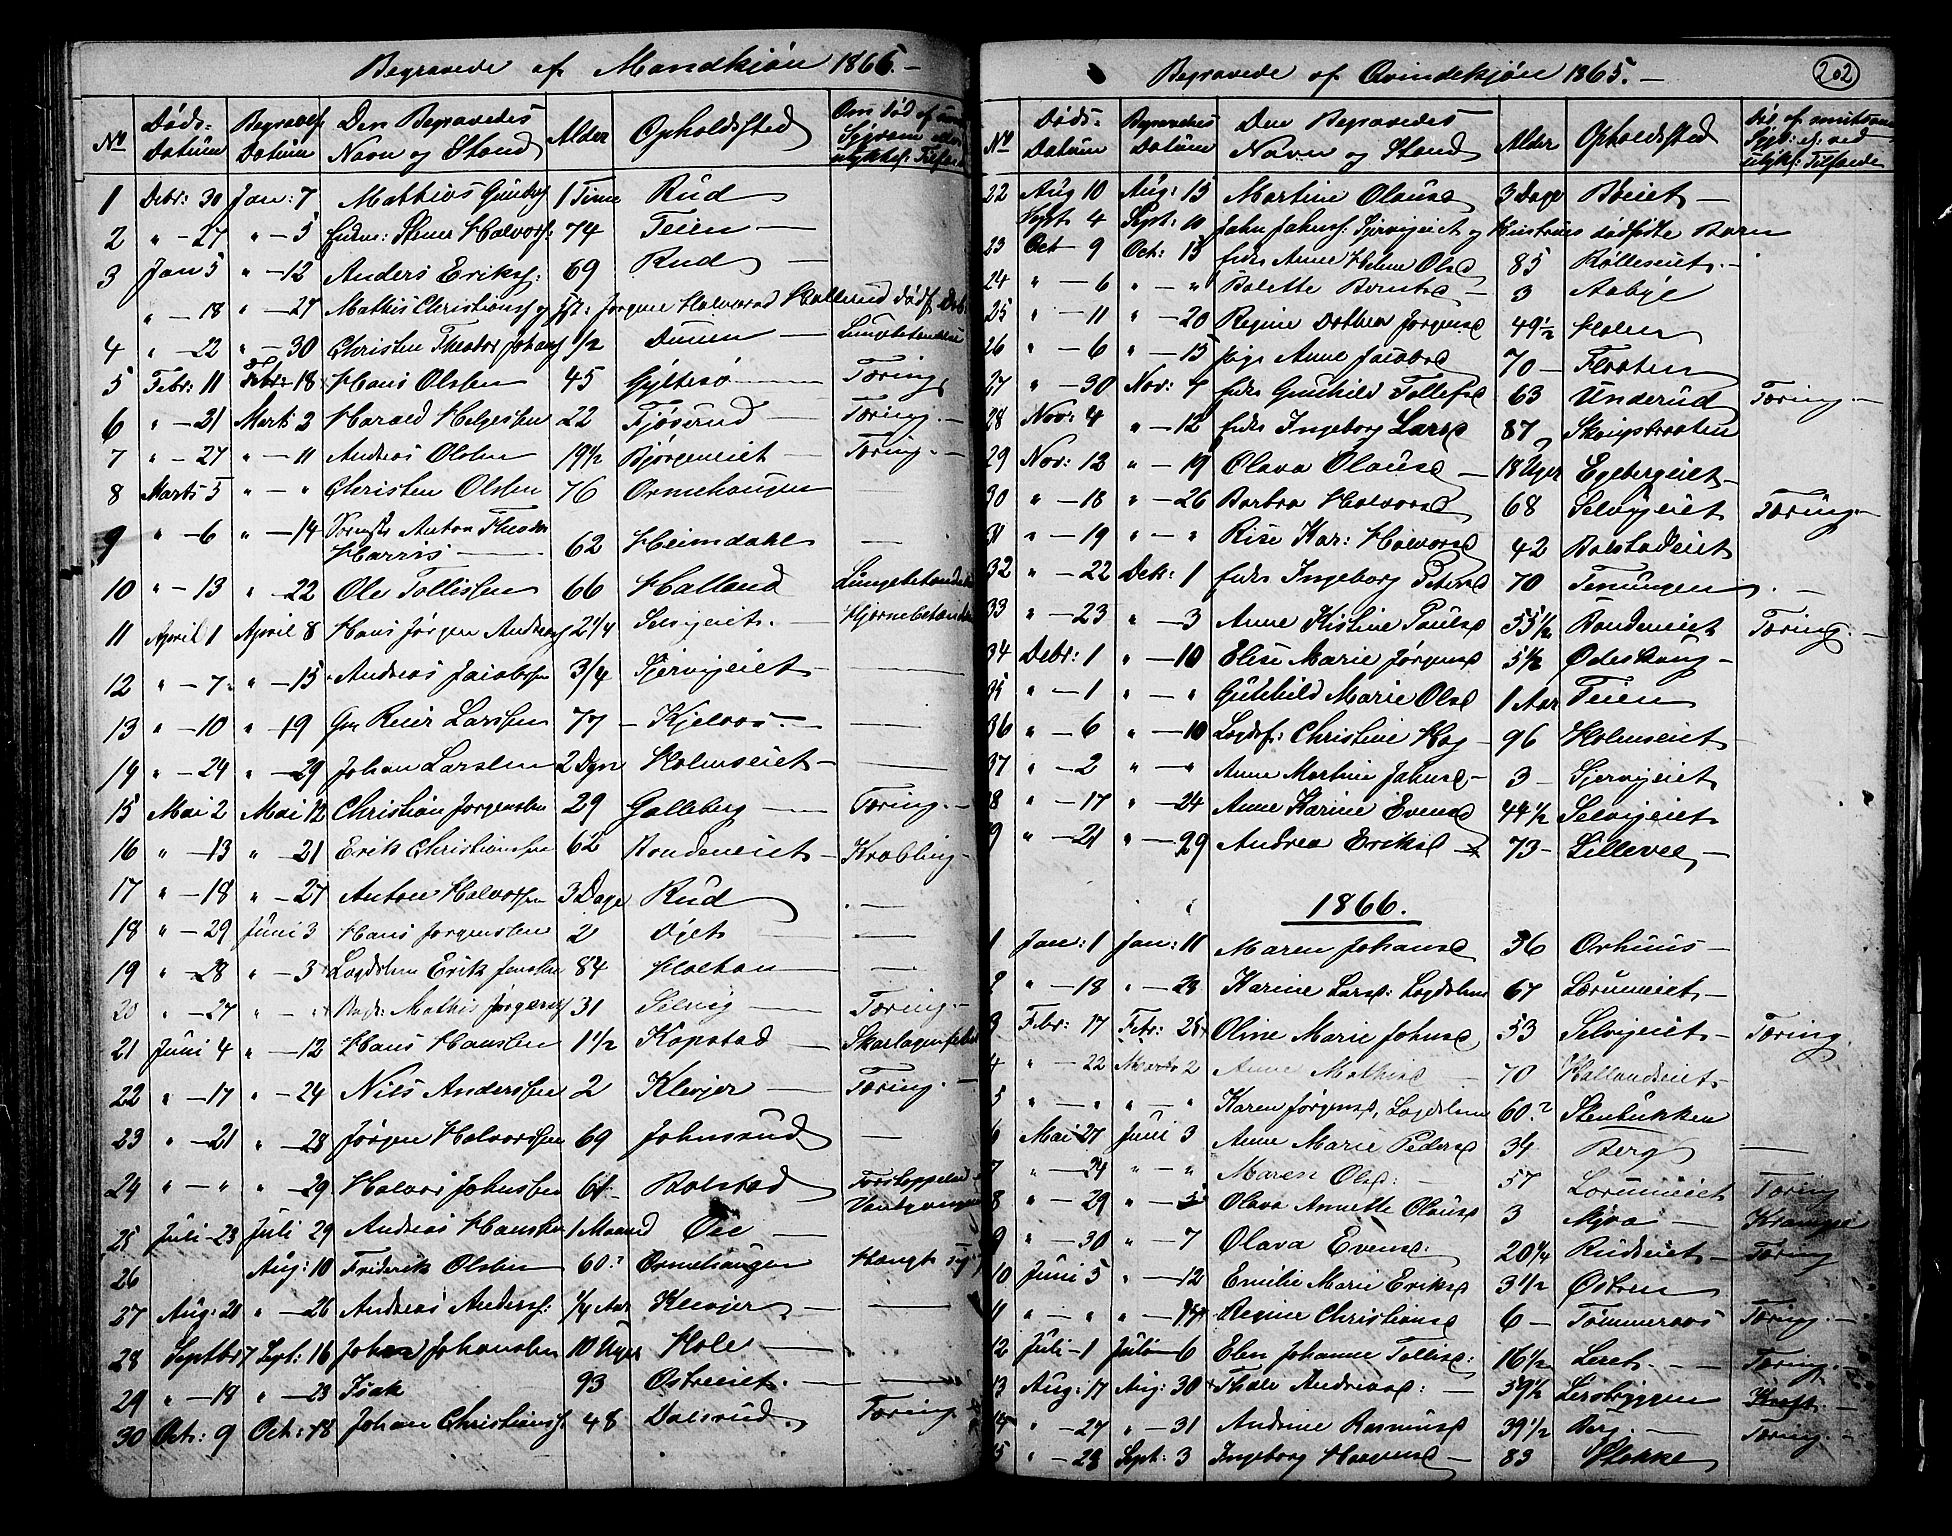 Begravede af Mandkjön 1866.
No Døds-Datum Begravels Datum Den Begravedes Navn og Stand Alder Opholdssted Om død af
1 Debr: 30 Jan: 7 Mathias 1 Time Rud
2 " - 27 " - 5 Halvors: 74 Teien
3 Jan 5 " - 12 Anders Eriks: 69 Rud
" - 18 " - 27 Mathis Christians og Jørgine Halvorsd Halland dødf.
4 " - 22 " - 30 Christen Theodor Johans 1/2 Lungebetendelse
5 Febr: 11 Febr: 18 Hans Olsen 45 Gyltesø Tæring
6 " - 21 Marts 2 Harald Helgessen 22 Fjøserud Tæring
7 " - 27 " - 11 Andreas Olsen 19 1/2 Bjørgeneiet Tæring
8 Marts 5 " - " Christen Olsen 76 Ormehaugen
9 " - 6 " - 14 Anton Theodor
Harris 62 Heimdahl
10 " - 13 " - 22 Ole Tollissen 66 Halland Lungebetendelse
11 April 1 April 8 Hans Jørgen Andreas 2 1/4 Selvigeiet Hjernebetendelse
12 " - 7 " - 15 Andreas Jacobsen 3/4 Sjervigeiet
13 " - 10 " - 19 Gm Reier Larssen 77 Kjelaas
14 " - 24 " - 29 Johan Larsen 2 Dgn Holmseiet
15 Mai 2 Mai 12 Christian Jorgensen 29 Galleberg Tæring
16 " - 13 " - 21 Erik Christiansen 62 Bondeneiet
17 " - 18 " - 27 Anton Halvorssen 3 Dage Rud
18 " - 29 Juni 3 Hans Jørgensen 2
19 " - 28 " - 3 Lægdslem Erik 84 Holtan
20 " - 27 " - " Mathis Jørgens 31 Selvig Tæring
21 Juni 4 " - 12 Hans Hansen 1 1/2 Kopstad Skarlagensfeber
22 " - 17 " - 24 Nils Anderssen 2 Klevjer Tæring
23 " - 21 " - 28 Jørgen Halvorssen 69 Johnsrud
24 " - " " - 29 Halvor Johnssen 61 Bolstad Forstoppelse
25 Juli 23 Juli 29 Andreas Hansen 1 Maaned
26 Aug: 10 Friderik Olsen 60? Ormehaugen Hængt sig
27 Aug: 20 " - 26 Andreas Anderss: 1/4 Aar Klevjer
28 Septbr 7 Sept: 16 Johan Johansen 10 Uger Hole
29 " - 18 " - 23 Isak 93 Østreeiet
30 Oct: 9 Oct: 18 Johan Christians 48 Dalsrud Tæring
202
Begravede af Qvindekjön 1865.
No Døds-Datum Begravelses Datum Den Begravedes Navn og Stand Alder Opholdssted
22 Aug 10 Aug: 15 Martine Olausd 3 Dage Bøeiet
Sept 4 Sept: 10 John Johns: Sjervigeiet og Hustrues dødfødte Barn
23 Oct 9 Oct: 15 Anne Helene Olsd 85
24 " - 6 " - " Bolette Berntsd 3 Aabye
25 " - 11 " - 20 Regine Dothea Jørgensd 49 1/2 Holm
26 " - 6 " - 15 Pige Anne Jacobsd 70 Floaten
27 " - 30 Nov: 7 Enke Gunhild Tollefsd 63 Underud Tæring
28 Nov: 4 " - 12 Enke Ingeborg Larsd 87 Skougbraaten
29 Nov: 12 " - 19 Olava Olausd 18 Uger Egebergeiet
30 " - 18 " - 26 Barbra Halvorsd 68 Selvigeiet Tæring
31 " - 19 Rise Kar: Halvorsd 42 Bolstadeiet
32 " - 22 Dek: 1 Enke Ingeborg Petersd 70
33 " - 23 " - 3 Anne Kistine Paulsd 55 1/2 Bondeneiet Tæring
34 Debr: 1 " - 10 Elise Marie Jørgensd 5 1/2 Ødeskoug
35 " - 1 " - " Gunhild Marie Olsd 1 Aar Teien
36 " - 6 " - 10 Lægdsf: Christine 96 Holmseiet
37 " - 2 " - " Anne Martine Johnsd 3 Sjervigeiet
38 " - 17 " - 24 Anne Karine Evensd 44 1/2 Selvigeiet
39 " - 21 " - 29 Andrea Eriksd 73 Lillevee
1866.
1 Jan: 1 Jan: 11 Maren Johansd 36 Orhuus
2 " - 18 " - 28 Karine Larsd: Lægdslem 67
3 Febr: 17 Febr: 25 Oline Marie Johnsd 53 Selvigeiet Tæring
4 " - 22 Marts 2 Anne Mathisd 70 Hallandseiet
5 " - " " - " Karen Jørgensd, Lægdslem 60? Stenbukken
6 Mai 27 Juni 3 Anne Marie Pedersd 34 Berg
7 " - 24 " - " Maren Olsd: 57 Tæring
8 " - 29 " - 5 Olava Annette Olausd 3 Myra Krampe
9 " - 30 " - 7 Olava Evensd: 20 1/4 Rudseiet Tæring
10 Juni 5 " - 12 Emilie Marie Eriksd 3 1/2 Østren
11 " - " " - 17 Regine Christiansd 6 Tømmeraas Tæring
12 Juli 1 Juli 6 Elen Johanne Tollisd: 16 1/2 Leret Tæring
13 Aug: 17 Aug: 30 Thale Andreasd: 59 1/2 Lersbryggen Kræft
14 " - 27 " - 31 Andrine Rasmusd 39 1/2 Berg Tæring
15 " - 28 Sept: 3 Ingeborg 83 Stokke